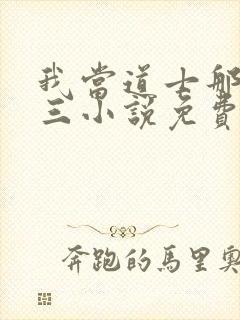 我當道士那
三小說免費
奔跑的馬里奧